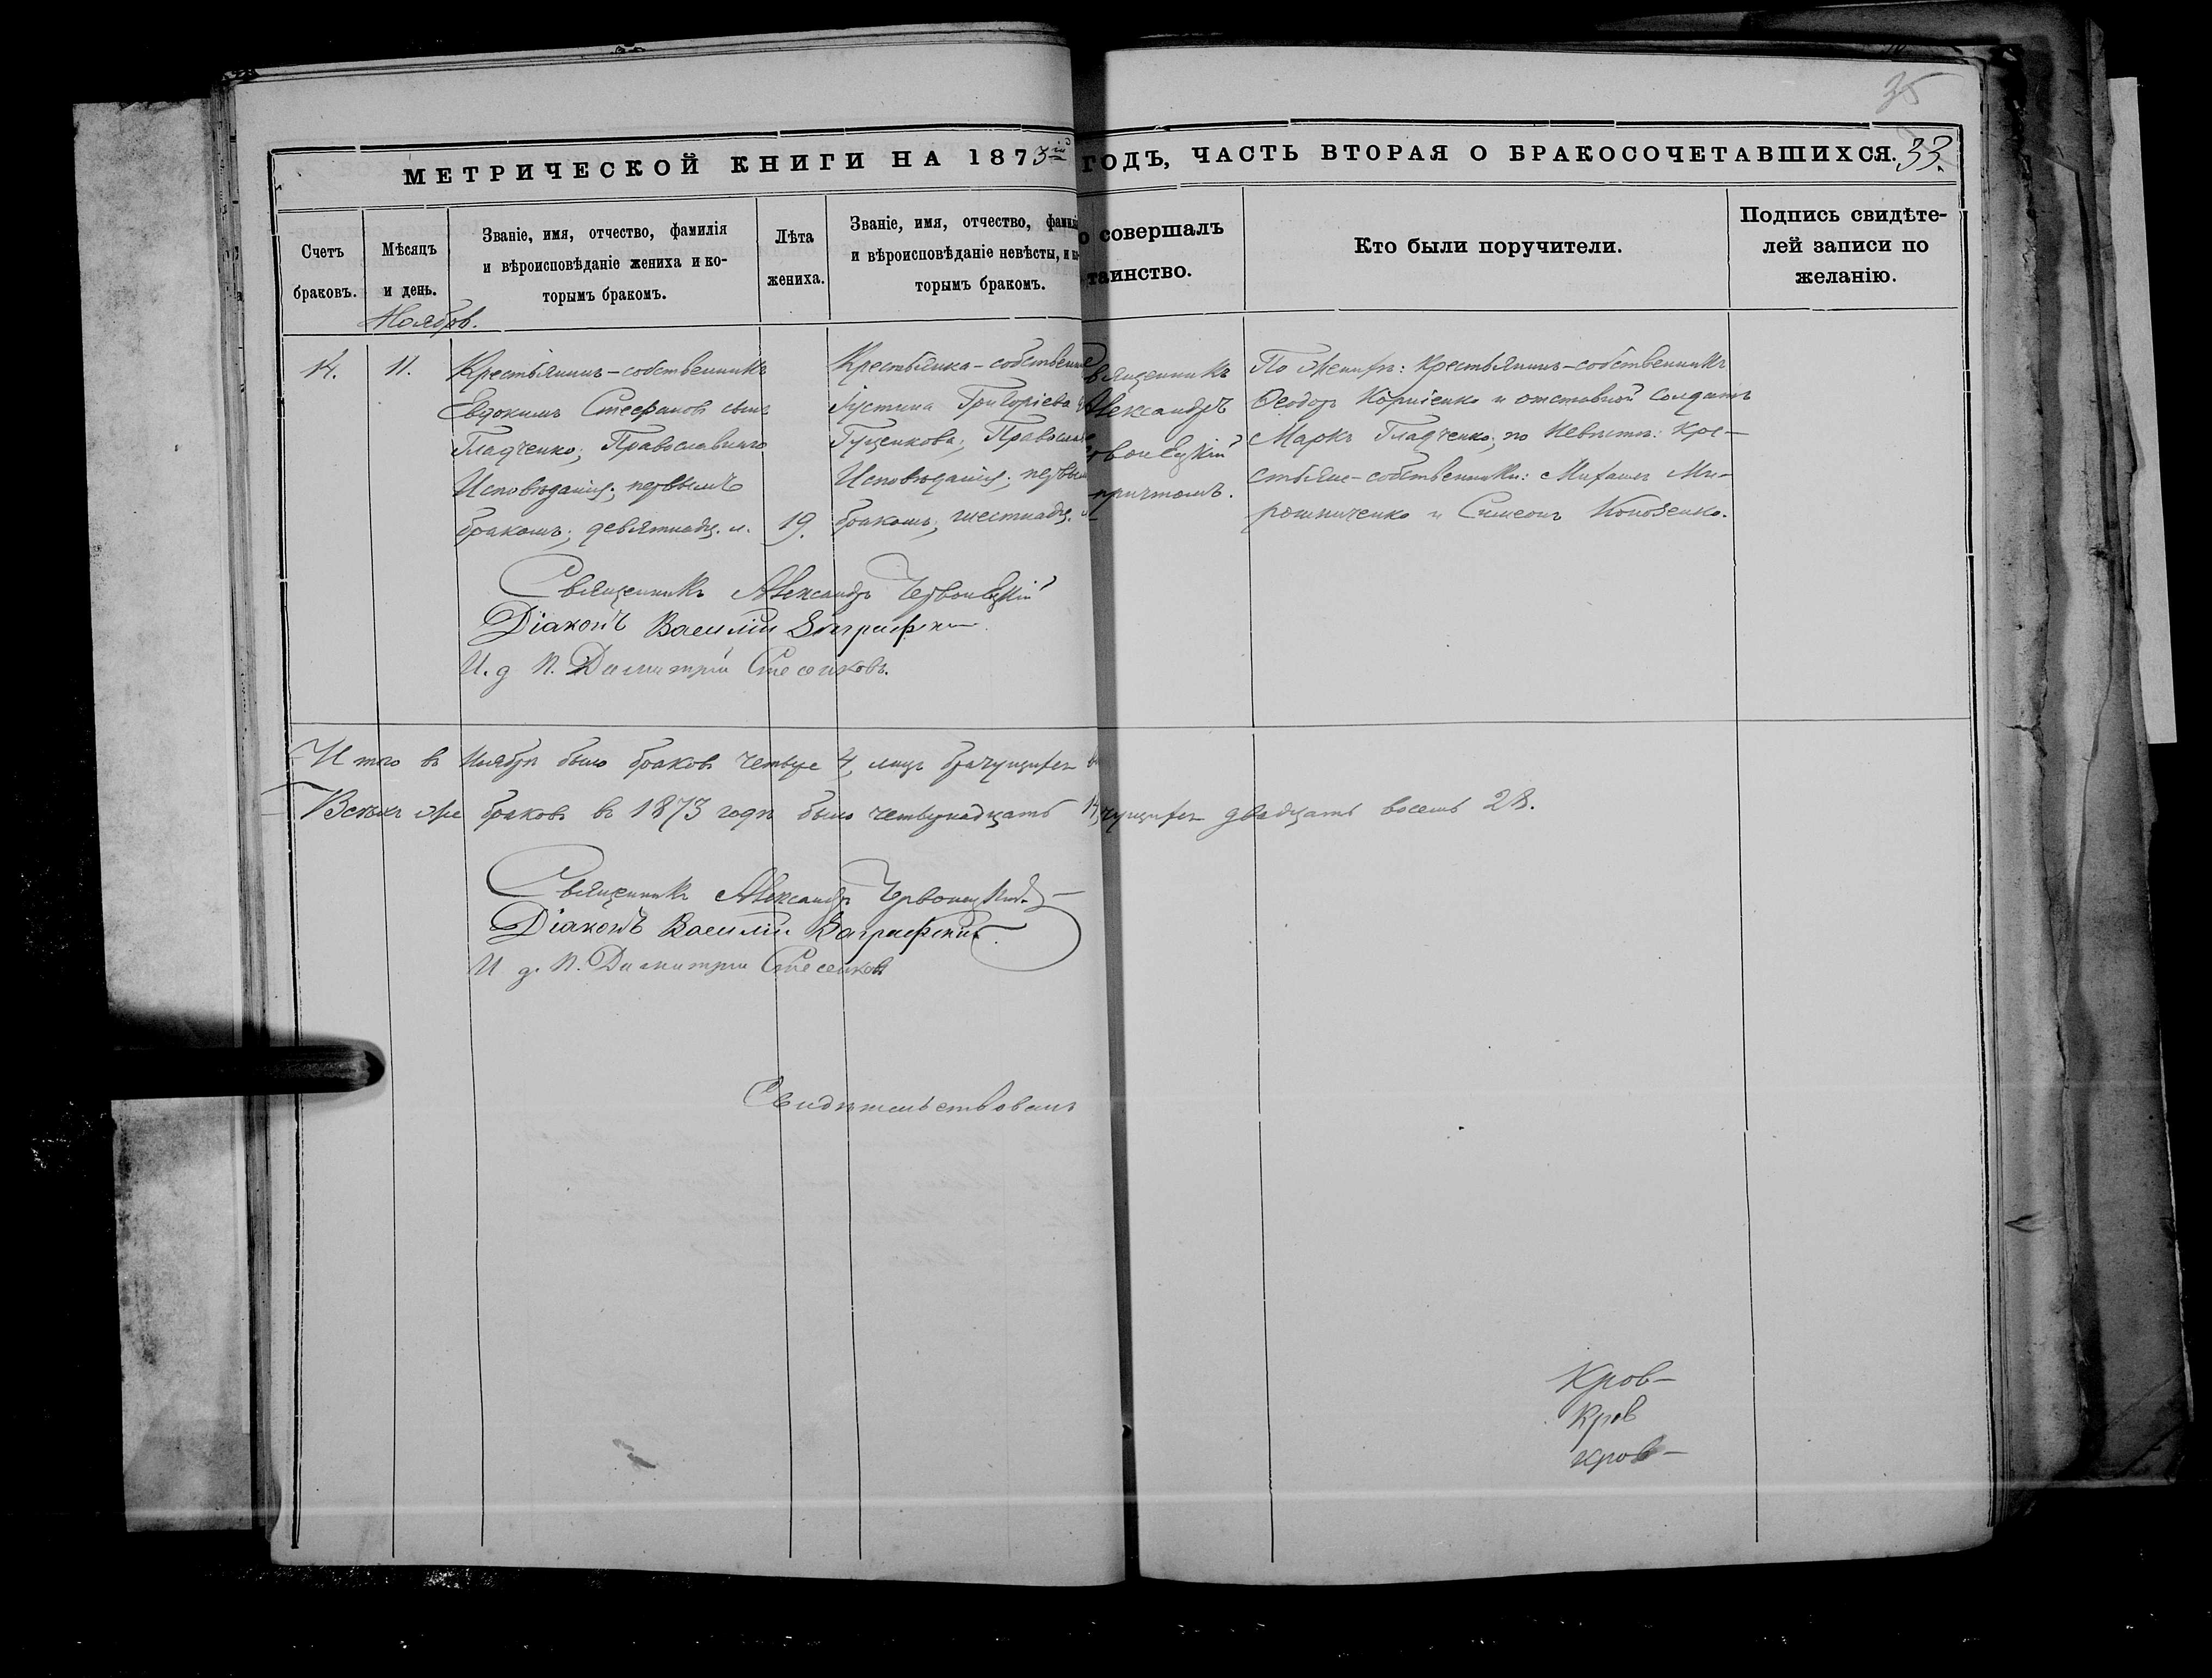 35
МЕТРИЧЕСКОЙ КНИГИ НА 1873ій ГОДЪ, ЧАСТЬ ВТОРАЯ О БРАКОСОЧЕТАВШИХСЯ. 33.
Счетъ
браковъ.
Мѣсяцъ
и день.
Званіе, имя, отчество, фамилія
и вѣроисповѣданіе жениха и ко-
торымъ бракомъ.
Лѣта
жениха.
Званіе, имя, отчество, фамилі
и вѣроисповѣданіе невѣсты, и ко-
торымъ бракомъ.
о совершалъ
таинство.
Кто были поручители.
Подпись свидѣте-
лей записи по
желанію.
Ноябрь.
14.
11.
Крестьянинъ-собственникъ
Евдокимъ Стефановъ сынъ
Гладченко; Православнаго
Исповѣданія; первымъ
бракомъ; девятнадц. л.
19.
Крестьянка-собственни
Іустина Григоріева
Гуценкова; Православ
Исповѣданія; первым
бракомъ; шестнадц. л
вященникъ
Александръ
рвонецкій
причтомъ.
По Женихѣ: Крестьянинъ-собственникъ
Ѳеодоръ Корніенко и отставной солдатъ
Маркъ Гладченко; по Невѣстѣ: Кре-
стьяне-собственники: Михаилъ Ми-
рошниченко и Симеонъ
Священникъ Александръ Червонецкій
Діаконъ Василій
И. д. П. Димитрій
Итого въ Ноябрѣ было браковъ четыре 4, лицъ брачущихся
Всѣхъ же браковъ въ 1873 годѣ было четырнадцать 14, чущихся двадцать восемь 28.
Священникъ Александръ Червонецкій
Діаконъ Василій
И. д. П. Димитрій
Свидѣтельствовалъ
Кров-
Кров
Кров-